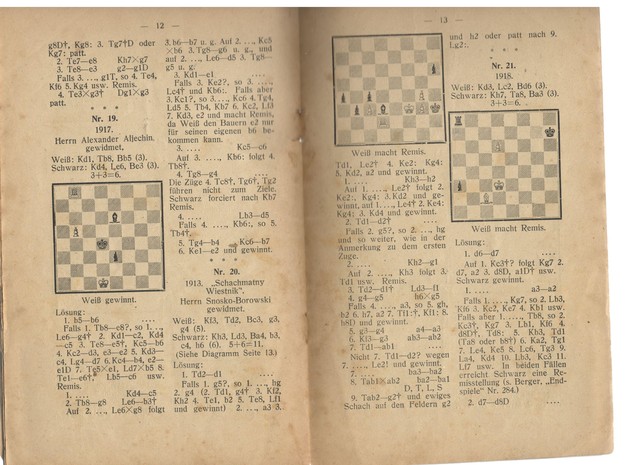 — 12 —
g8D†, Kg8: 3. Tg7†D oder
Kg7: patt.
2. Te7—e8 Kh7×g7
3. Te8—e3 g2—g1D
Falls 3. . . ., g1T, so 4. Te4,
Kf6 5. Kg4 usw. Remis.
4. Te3×g3† Dg1×g3
patt.
* * *
Nr. 19.
1917.
Herrn Alexander Aljechin
gewidmet.
Weiß: Kd1, Tb8, Bb5 (3).
Schwarz: Kd4, Le6, Be3 (3).
3+3=6.
Weiß gewinnt.
Lösung:
1. b5—b6 . . . .
Falls 1. Tb8—e8?, so 1. . . .,
Le6—g4† 2. Kd1—c2, Kd4
—c5 3. Te8—e5†, Kc5—b6
4. Kc2—d3, e3—e2 5. Kd3—
c4, Lg4—d7 6. Kc4—b4, e2—
e1D 7. Te5×e1, Ld7×b5 8.
Te1—e6†, Lb5—c6 usw.
Remis.
1. . . . . Kd4—c5
2. Tb8—g8 Le6—b3†
Auf 2. . . ., Le6×g8 folgt
3. b6—b7 u. g. Auf 2. . . ., Kc5
×b6 3. Tg8—g6 u. g., und
auf 2. . . ., Le6—d5 3. Tg8—
g5 u. g.
3. Kd1—e1 . . . .
Falls 3. Ke2?, so 3. . . .,
Lc4† und Kb6:. Falls aber
3. Kc1?, so 3. . . ., Kc6 4. Tg4,
Ld5 5. Tb4, Kb7 6. Kc2, Lf3
7. Kd3, e2 und macht Remis,
da Weiß den Bauern e2 nur
für seinen eigenen b6 be-
kommen kann.
3. . . . . Kc5—c6
Auf 3. . . ., Kb6: folgt 4.
Tb8†.
4. Tg8—g4 . . . .
Die Züge 4. Tc8†, Tg6†, Tg2
führen nicht zum Ziele.
Schwarz forciert nach Kb7
Remis.
4. . . . . Lb3—d5
Falls 4. . . ., Kb6:, so 5.
Tb4†.
5. Tg4—b4 Kc6—b7
6. Ke1—e2 und gewinnt.
* * *
Nr. 20.
1913. „Schachmatny
Wiestnik".
Herrn Snosko-Borowski
gewidmet.
Weiß: Kf3, Td2, Bc3, g3,
g4 (5).
Schwarz: Kh3, Ld3, Ba4, b3,
c4, h6 (6). 5+6=11.
(Siehe Diagramm Seite 13.)
Lösung:
1. Td2—d1 . . . .
Falls 1. g5?, so 1. . . ., hg
2. g4 (2. Td1, g4† 3. Kf2,
Kh2 4. Te1, b2 5. Te8, Lf1
und gewinnt) 2. . . ., a3 3.
— 13 —
Weiß macht Remis.
Td1, Le2† 4. Ke2: Kg4:
5. Kd2, a2 und gewinnt.
1. . . . . Kh3—h2
Auf 1. . . ., Le2† folgt 2.
Ke2:, Kg4: 3. Kd2 und ge-
winnt, auf 1. . . ., Le4† 2. Ke4:
Kg4: 3. Kd4 und gewinnt.
2. Td1—d2† . . . .
Falls 2. g5?, so 2. . . ., hg
und so weiter, wie in der
Anmerkung zu dem ersten
Zuge.
2. . . . . Kh2—g1
Auf 2. . . ., Kh3 folgt 3.
Td1 usw. Remis.
3. Td2—d1† Ld3—f1
4. g4—g5 h6×g5
Falls 4. . . ., a3, so 5. gh,
b2 6. h7, a2 7. Tf1:†, Kf1: 8.
h8D und gewinnt.
5. g3—g4 a4—a3
6. Kf3—g3 ab3—ab2
7. Td1—ab1 . . . .
Nicht 7. Td1—d2? wegen
7. . . . ., Le2! und gewinnt.
7. . . . . ba3—ba2
8. Tab1×ab2 ba2—ba1
D, T, L, S
9. Tab2—g2† und ewiges
Schach auf den Feldern g2
und h2 oder patt nach 9.
Lg2:.
* * *
Nr. 21.
1918.
Weiß: Kd3, Lc2, Bd6 (3).
Schwarz: Kh7, Ta8, Ba3 (3).
3+3=6.
Weiß macht Remis.
Lösung:
1. d6—d7 . . . .
Auf 1. Kc3†? folgt Kg7 2.
d7, a2 3. d8D, a1D† usw.
Schwarz gewinnt.
1. . . . . a3—a2
Falls 1. . . ., Kg7, so 2. Lb3,
Kf6 3. Kc2, Ke7 4. Kb1 usw.
Falls aber 1. . . ., Tb8, so 2.
Kc3†, Kg7 3. Lb1, Kf6 4.
d8D†, Td8: 5. Kb3, Td1
(Ta8 oder b8†) 6. Ka2, Tg1
7. Le4, Ke5 8. Lc6, Tg3 9.
La4, Kd4 10. Lb3, Kc3 11.
Lf7 usw. In beiden Fällen
erreicht Schwarz eine Re-
misstellung (s. Berger, „End-
spiele" Nr. 284.)
2. d7—d8D . . . .